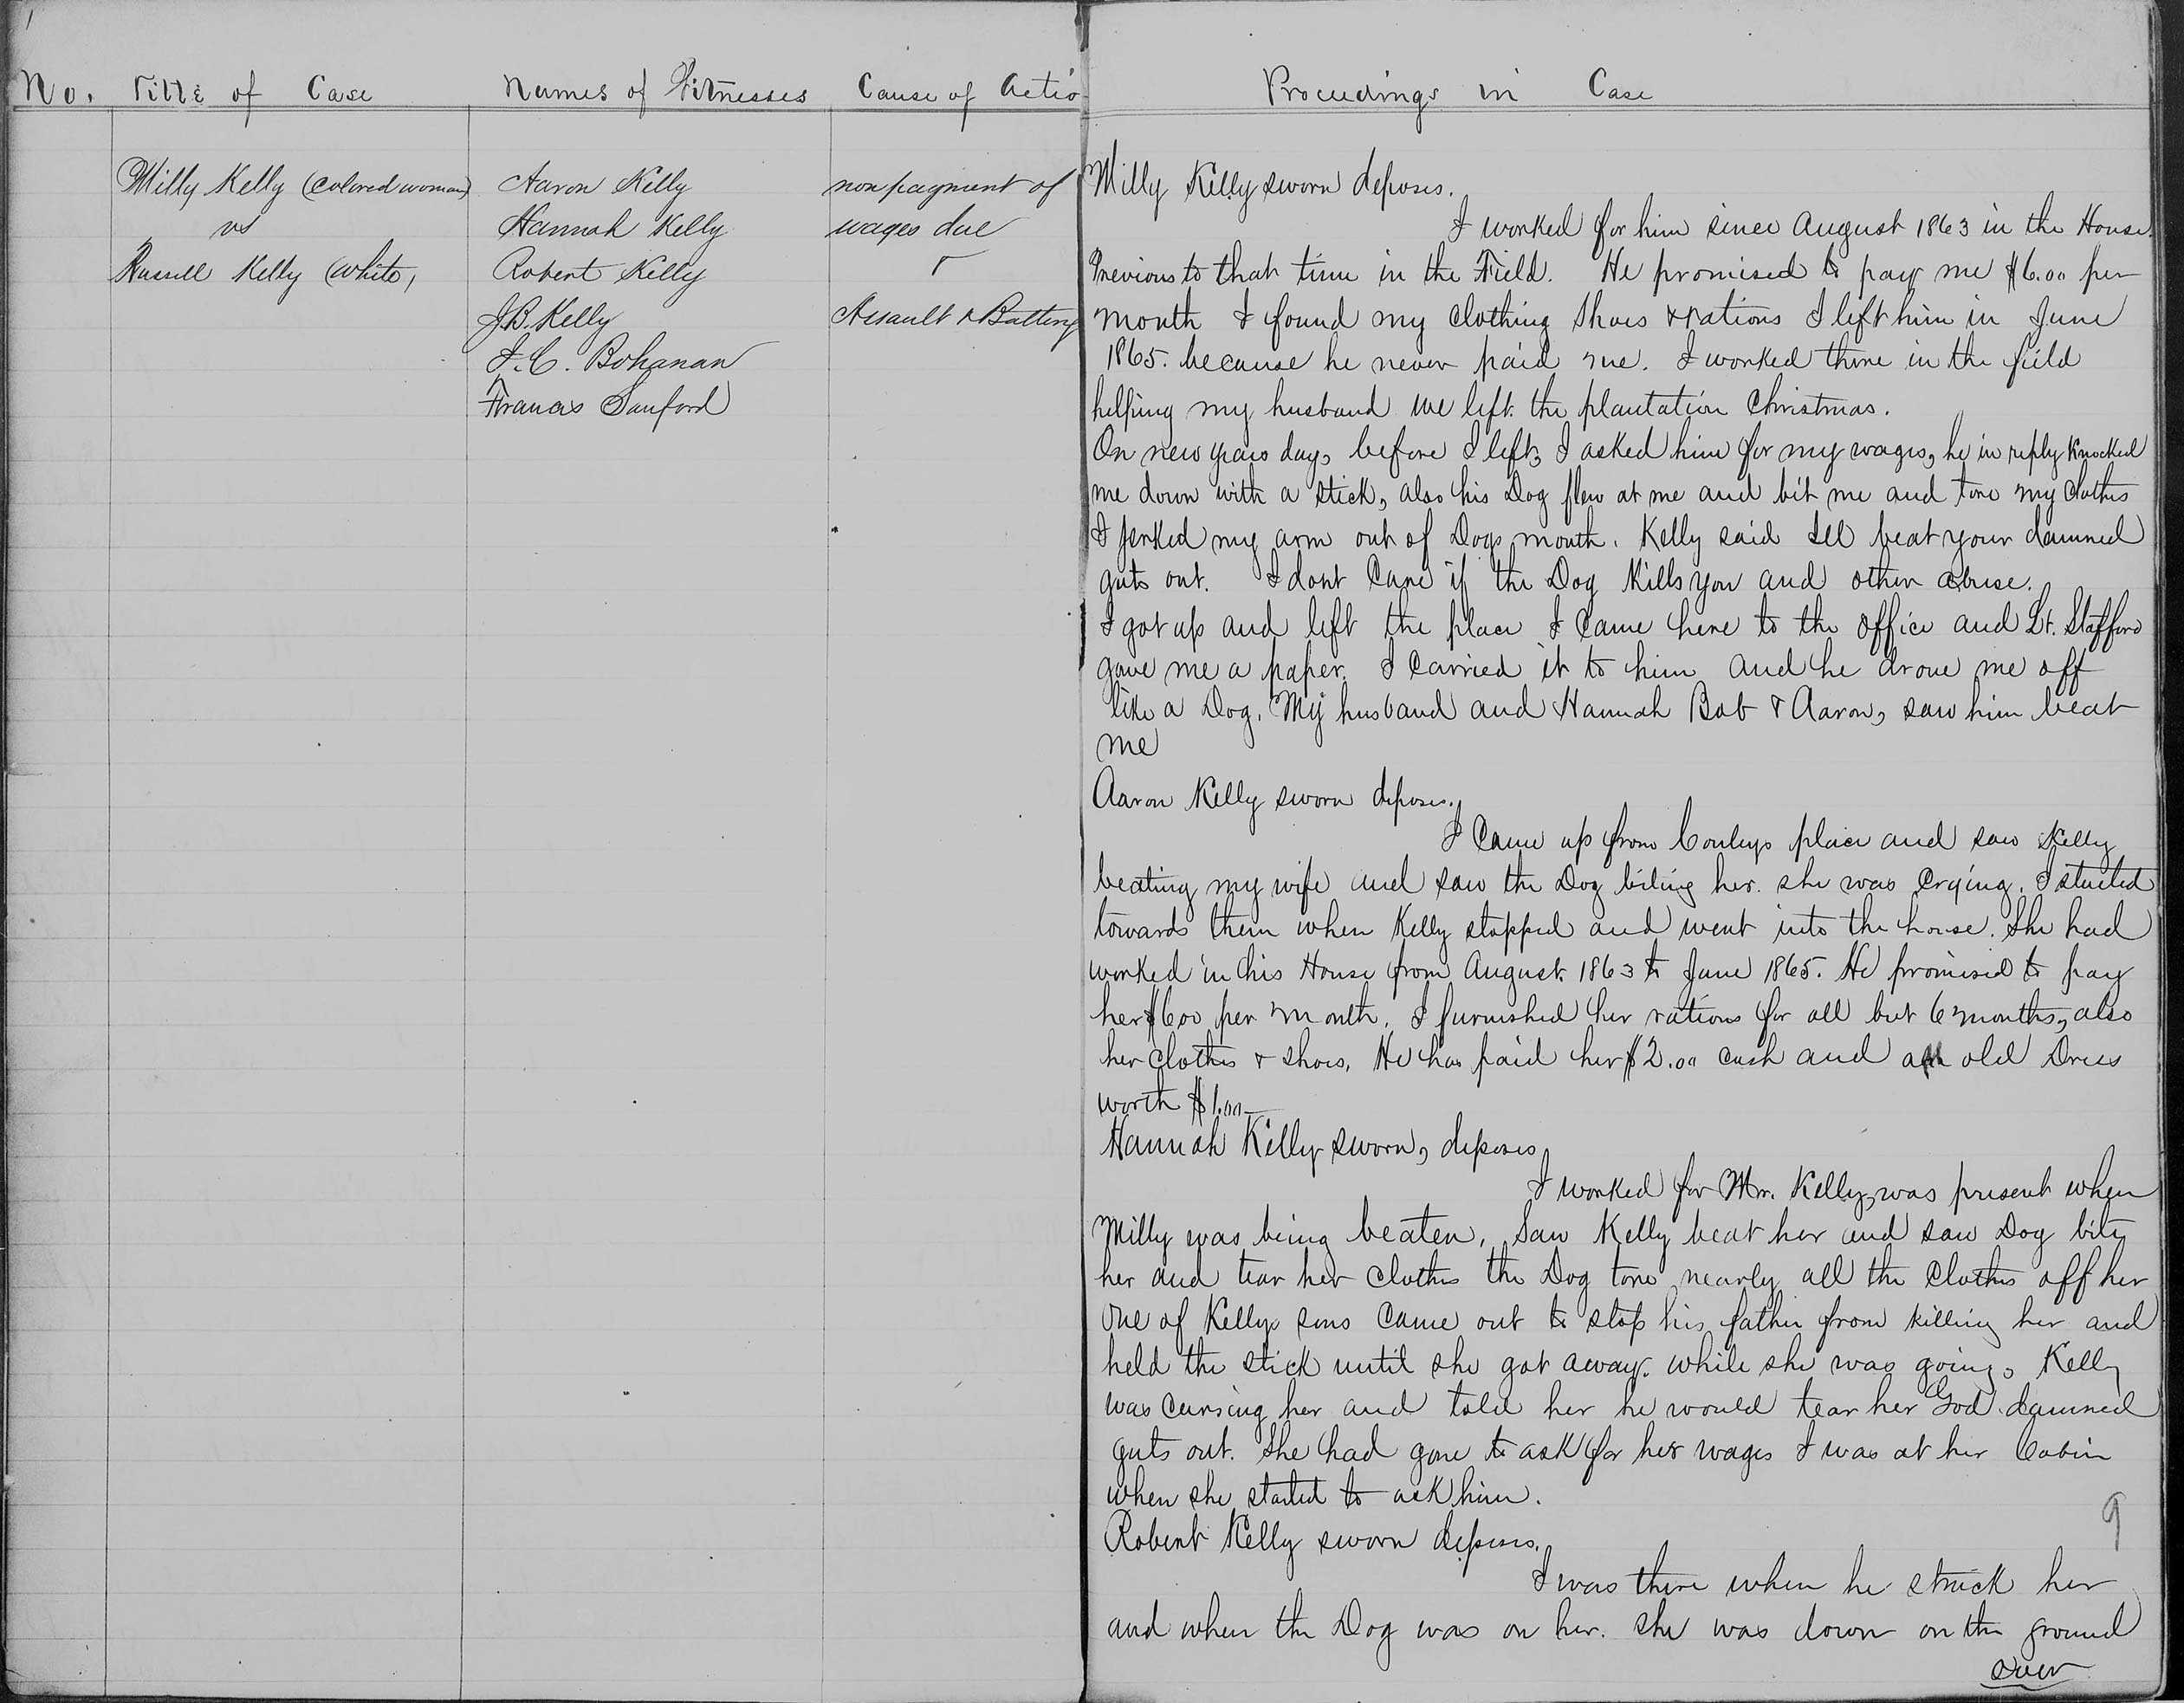 1
No. Title of Case Names of Witnesses Cause of Actio
Milly Kelly (colored woman) Aaron Kelly non payment of
vs Hannah Kelly wages due
Russell Kelly (white, Robert Kelly &
J.B. Kelly Assault & Battery
J. C. Bohanan
Francis Sanford
Proceedings in Case
Milly Kelly sworn deposes.
I worked for him since August 1863 in the House.
Previous to that time in the Field. He promised to pay me $6.00 per
month I found my clothing Shoes & rations I left him in June
1865. because he never paid me. I worked there in the field
helping my husband we left the plantation Christmas.
On new years day, before I left, I asked him for my wages, he in reply knocked
me down with a stick, also his Dog flew at me and bit me and tore my clothes
I jerked my arm out of Dogs mouth. Kelly said Ill beat your damned
guts out. I dont care if the Dog kills you and other abuse.
I got up and left the place I came here to the office and Lt. Stafford
gave me a paper. I carried it to him and he drove me off
like a Dog. My husband and Hannah Bob & Aaron, saw him beat
me
Aaron Kelly sworn deposes.
I came up from Conleys place and saw Kelly
beating my wife and saw the Dog biting her. she was crying. I started
towards them when Kelly stopped and went into the house. She had
worked in his House from August 1863 to June 1865. He promised to pay
her $6.00 per month. I furnished her rations for all but 6 months, also
her clothes & shoes. He has paid her $2.00 cash and an old Dress
worth $1.00
Hannah Kelly sworn, deposes
I worked for Mr. Kelly, was present when
Milly was being beaten, Saw Kelly beat her and saw Dog bite
her and tear her clothes the Dog tore nearly all the clothes off her
one of Kellys sons came out to stop his father from killing her and
held the stick until she got away. while she was going, Kelly
was cursing her and told her he would tear her God damned
guts out. She had gone to ask for her wages I was at her Cabin
when she started to ask him.
Robert Kelly sworn deposes.
9
I was there when he struck her
and when the Dog was on her. she was down on the ground
over